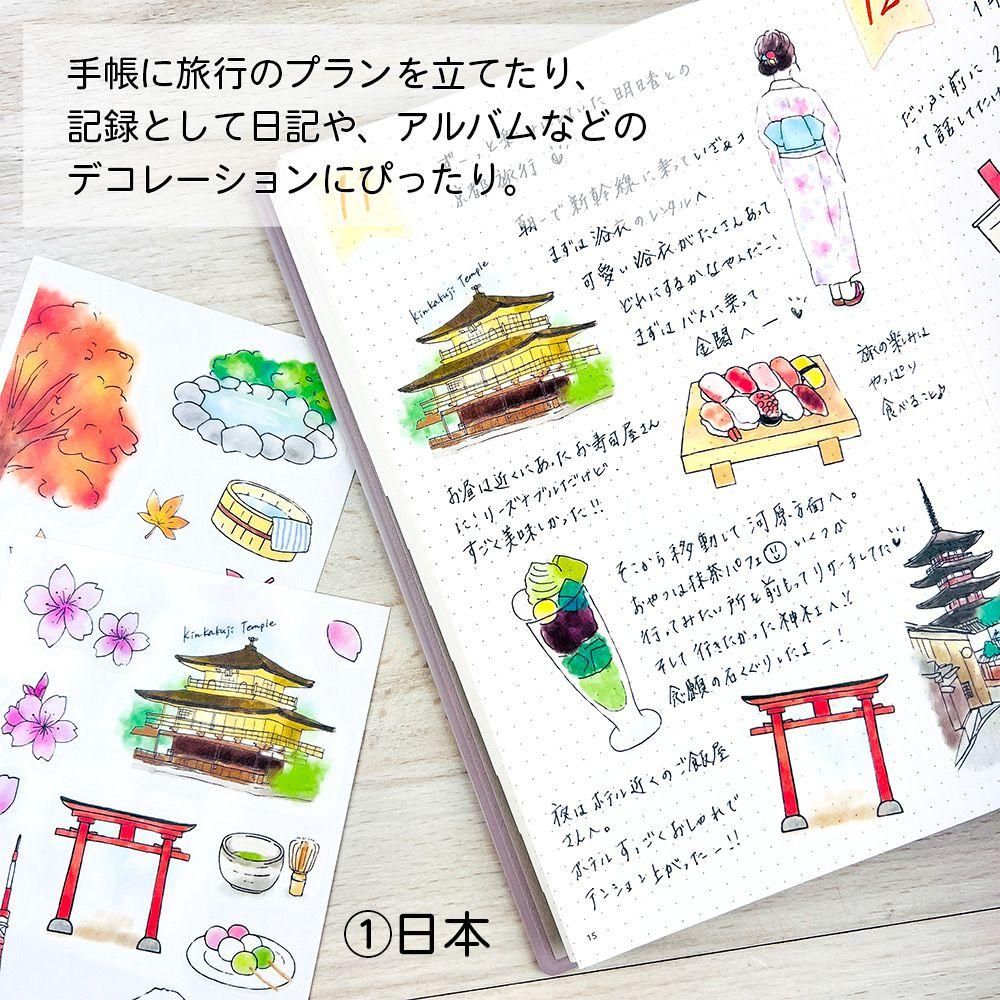 手帳に旅行のプランを立てたり、
記録として日記や、アルバムなどの
デコレーションにぴったり。
11
ずーっと楽しみにしていた 明日香との
京都旅行
朝一で新幹線に乗っていざぁコ
まずは浴衣のレンタルへ
可愛い浴衣がたくさんあって
どれにするかなやんだー!
まずはバスに乗って
金閣へー
Kinkakuji Temple
旅の楽しみは
やっぱり
食べること♪
お昼は近くにあったお寿司屋さん
に!リーズナブルだけど
すごく美味しかった!!
そこから移動して河原方面へ。
おやつは抹茶パフェ いくつか
行ってみたい所を前もってリサーチしてた
そして行きたかった神社へ!!
念願の石くぐりしたよー!
夜はホテル近くのご飯屋
さんへ。
ホテルすっごくおしゃれで
テンション上がったー!!
15
12
だいぶ前に
って話してたけ
Kinkakuji Temple
①日本